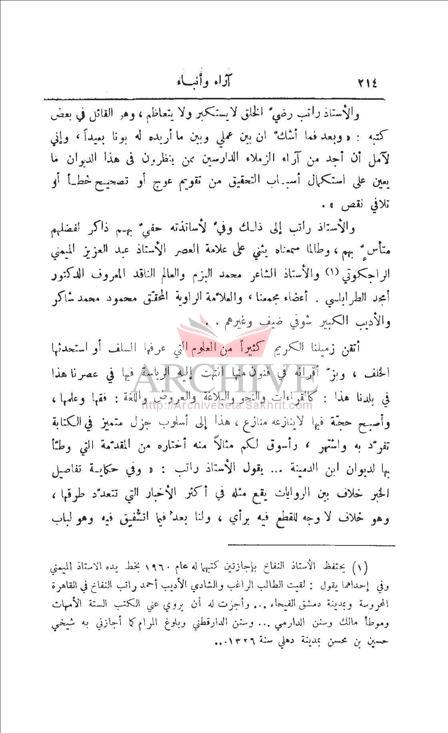 ٢١٤
آراء وأنباء
والأستاذ راتب رضيّ الخلق لا يستكبر ولا يتعاظم، وهو القائل في بعض
كتبه : « وبعد فما أشك ان بين عملي وبين ما أريده له بونا بعيداً، وإني
لآمل أن أجد من آراء الزملاء الدارسين ممن ينظرون في هذا الديوان ما
يعين على استكمال أسباب التحقيق من تقويم عوج أو تصحيح خطأ أو
تلافي نقص » .
والأستاذ راتب إلى ذلك وفيّ لأساتذته حفيّ بهم ذاكر لفضلهم
متأسٍّ بهم، وطالما سمعناه يثني على علامة العصر الأستاذ عبد العزيز الميمني
الراجكوتي (١) والأستاذ الشاعر محمد البزم والعالم الناقد المعروف الدكتور
أمجد الطرابلسي . أعضاء مجمعنا، والعلامة الراوية المحقق محمود محمد شاكر
والأديب الكبير شوقي ضيف وغيرهم .
أتقن زميلنا الكريم كثيراً من العلوم التي عرفها السلف أو استحدثها
الخلف، وبزّ أقرانه في فنون منها انتهت إليه الرياسة فيها في عصرنا هذا
في بلدنا هذا : كالقراءات والنحو والبلاغة والعروض واللغة : فقها وعلمها،
وأصبح حجّة فيها لا ينازعه منازع، هذا إلى أسلوب جزل متميز في الكتابة
تفرّد به واشتهر، وأسوق لكم مثالاً منه أختاره من المقدّمة التي وطّأ
بها لديوان ابن الدمينة ... يقول الأستاذ راتب : « وفي حكاية تفاصيل
الخبر خلاف بين الروايات يقع مثله في أكثر الأخبار التي تتعدّد طرقها،
وهو خلاف لا وجه للقطع فيه برأي، ولنا بعد فيما اتشفيق فيه وهو لباب
(١) يحتفظ الأستاذ النفاخ بإجازتين كتبها له عام ١٩٦٠ بخط يده الاستاذ الميمني
وفي إحداهما يقول : لقيت الطالب الراغب والشادي الأديب أحمد راتب النفاخ في القاهرة
المحروسة وبمدينة دمشق الفيحاء ... وأجزت له أن يروي عني الكتب الستة الأمهات
وموطأ مالك وسنن الدارمي ... وسنن الدارقطني وبلوغ المرام كما أجازني به شيخي
حسين بن محسن بمدينة دهلي سنة ١٣٢٦ ...
ARCHIVE
http://Archivebeta.Sakhrit.com